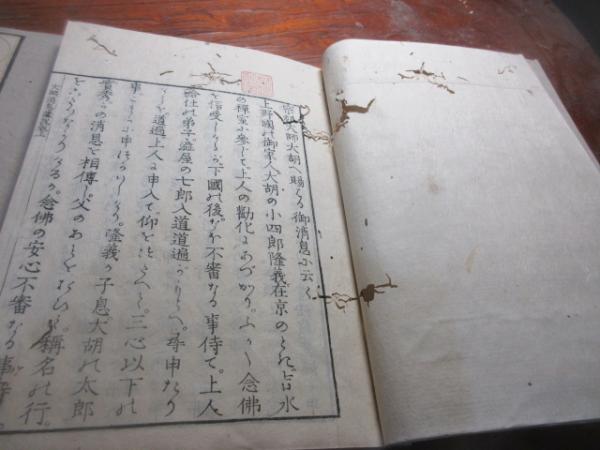 宗祖大師大胡へ賜はる御消息に云く
上野國の御家人大胡の小四郎隆義在京のとき吉水
の禪室に參じて上人の勸化にあづかり。ふかく念佛
を信受しけるが下國の後なほ不審なる事侍て。上人
給仕の弟子澁屋の七郎入道道遍がもとへ。尋申たり
道遍上人に申入て仰をつたへき。三心以下の
事こまかに申つかはしけり。隆義が子息。大胡の太郎
實秀この消息を相傳し。父のあとをおひ。稱名の行。
念佛の安心不審なる事